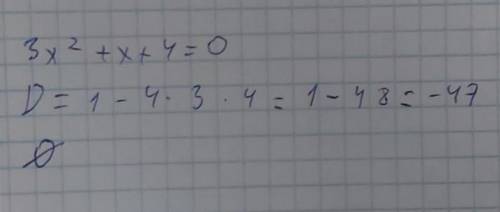 3x² + x + 4 = 0
D = 1 - 4 · 3 · 4 = 1 - 48 = -47
∅